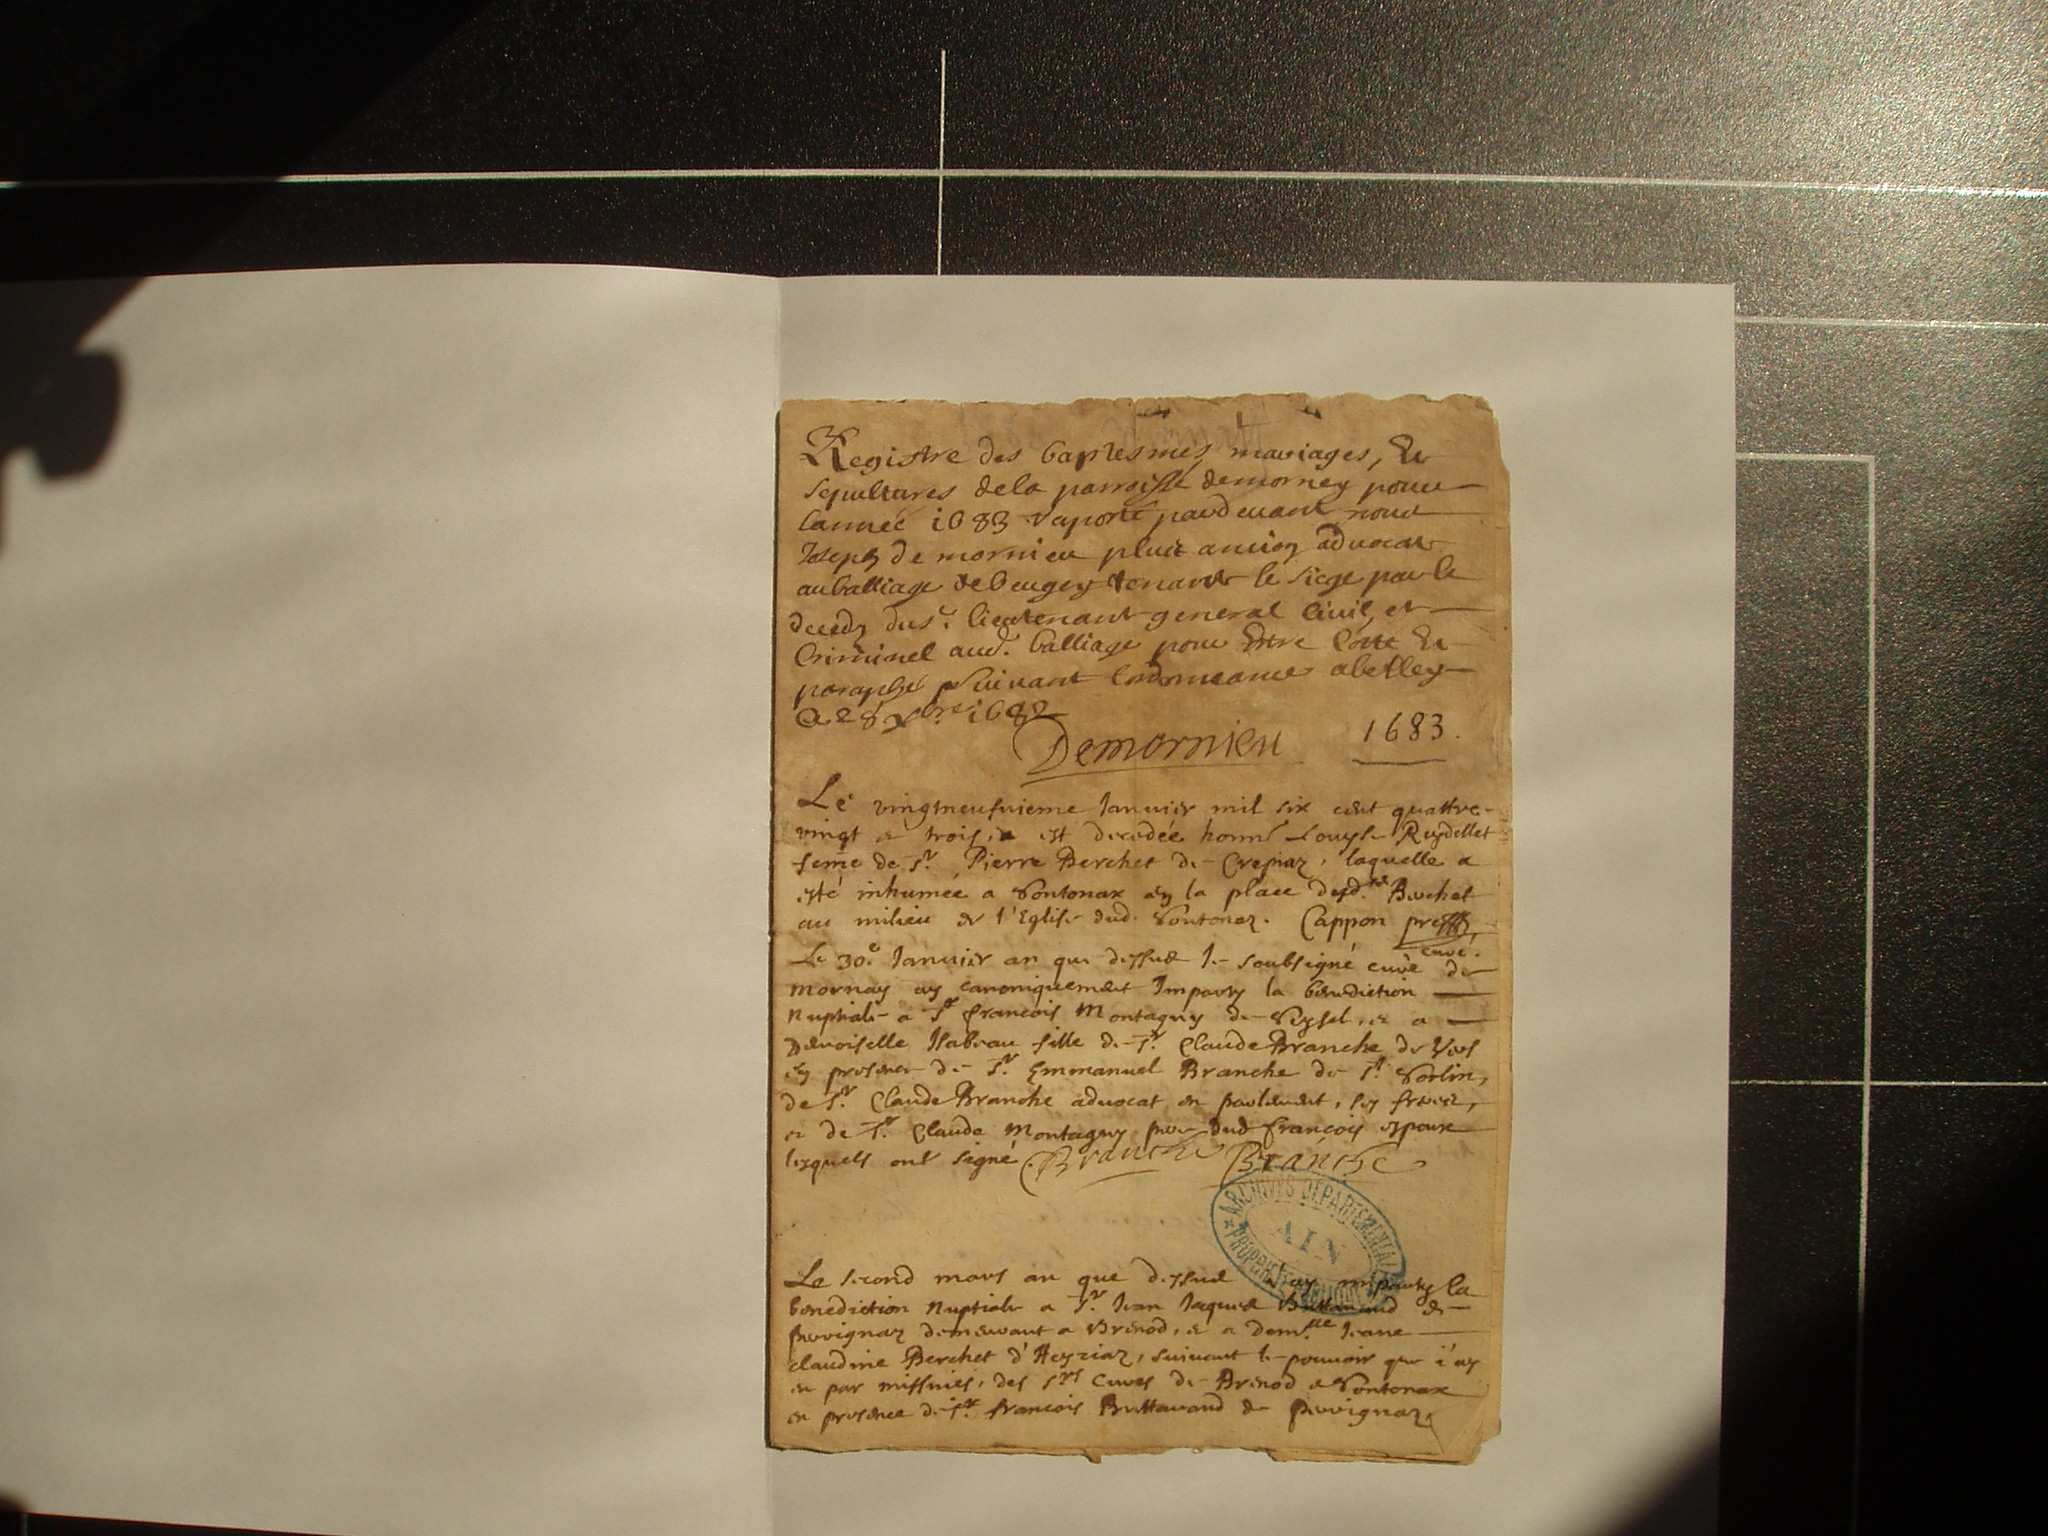 Registre des baptesmes, mariages, Et
sepultures dela parroisse demornay pour
lannee 1683 raporté pardevant nous
Joseph de mornieu plus ancien advocat
au balliage de beugey tenant le siege par le
deceds du sr. lieutenant general civil, et
Criminel aud. balliage pour Estre Cotté Et
paraphé suivant lordonnance abelley
Ce 28 xbre 1682
Demornieu 1683.
Le vingtneufvieme Janvier mil six cent quattre-
vingt et trois, est decedée honnê Louyse Reydellet
feme de sr. Pierre Berchet de Crepiaz, laquelle a
esté inhumée a Sontonax en la place desd. Berchet
au milieu de l'Eglise dud. Sontonax. Cappon
curé.
Le 30e Janvier an que dessus Je soubsigné curé de
mornay ay canoniquement Imparty la benediction
Nuptiale a Sr francois Montagny de Seyssel, et a
Demoiselle Isabeau fille de Sr. Claude Branche de Vers
en presence de Sr. Emmanuel Branche de St. Sorlin,
de Sr. Claude Branche advocat en parlement, ses freres,
et de Sr. Claude Montagny pere dud francois espoux
lesquels ont signé. Branche Branche
ARCHIVES DEPARTEMENTALES
AIN
PROPRIETE PUBLIQUE
Le second mars an que dessus J'ay imparty la
benediction Nuptiale a Sr. Jean Jaques Buttavand de
pervignaz demeurant a Brenod, et a demlle Jeane
claudine Berchet d'Heyriaz, suivant le pouvoir que i'ay
eu par missives, des srs Cures de Brenod et Sontonax
en presence de Sr. francois Buttavand de pervignaz,